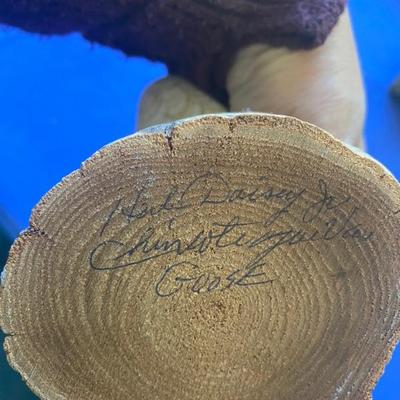 Herb Daisey Jr.
Chincoteague Va
Goose